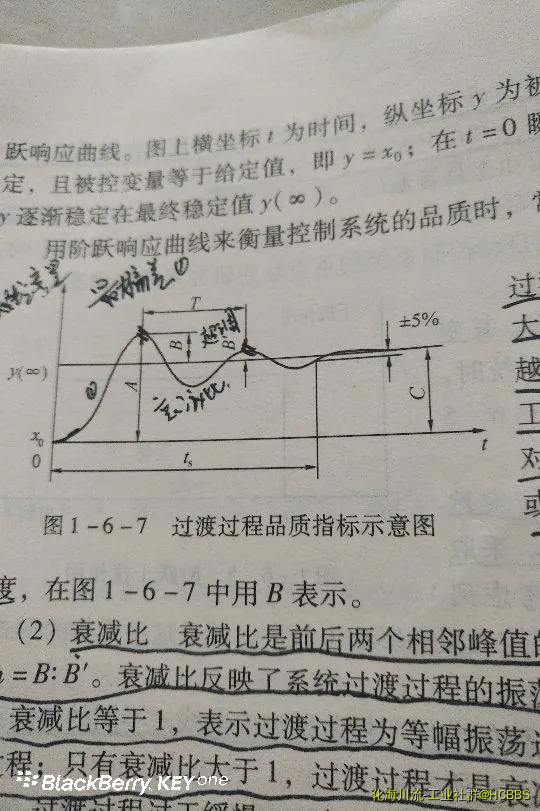 跃响应曲线。图上横坐标 t 为时间，纵坐标 y 为被
定，且被控变量等于给定值，即 y = x₀；在 t = 0 瞬
y 逐渐稳定在最终稳定值 y(∞)。
用阶跃响应曲线来衡量控制系统的品质时，常
过渡
大
越
工
对
或
最大偏差①
T
±5%
B
B'
y(∞)
①
A
衰减比
C
x₀
0
t
tₛ
图 1-6-7 过渡过程品质指标示意图
度，在图 1-6-7 中用 B 表示。
(2) 衰减比 衰减比是前后两个相邻峰值的
n = B:B'。衰减比反映了系统过渡过程的振荡
衰减比等于1，表示过渡过程为等幅振荡过
程；只有衰减比大于1，过渡过程才是衰减
BlackBerry KEYone
化海川流-工业社群@HCBBS